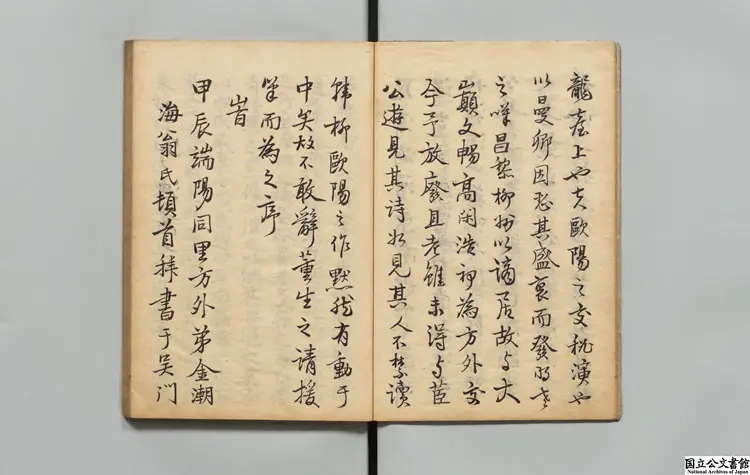 龍蓋上也夫歐陽之交秘演也
以曼卿因悲其盛衰而發
之嘆昌黎柳州以謫居故与大
顛文暢高閑浩初為方外交
今予放廢且老雖未得与臣
公遊見其詩如見其人不禁讀
韓柳歐陽之作默然有動于
中矣故不敢辭董生之請援
筆而為之序
旹
甲辰端陽同里方外弟金潮
海翁氏頓首拜書于吳門
国立公文書館
National Archives of Japan